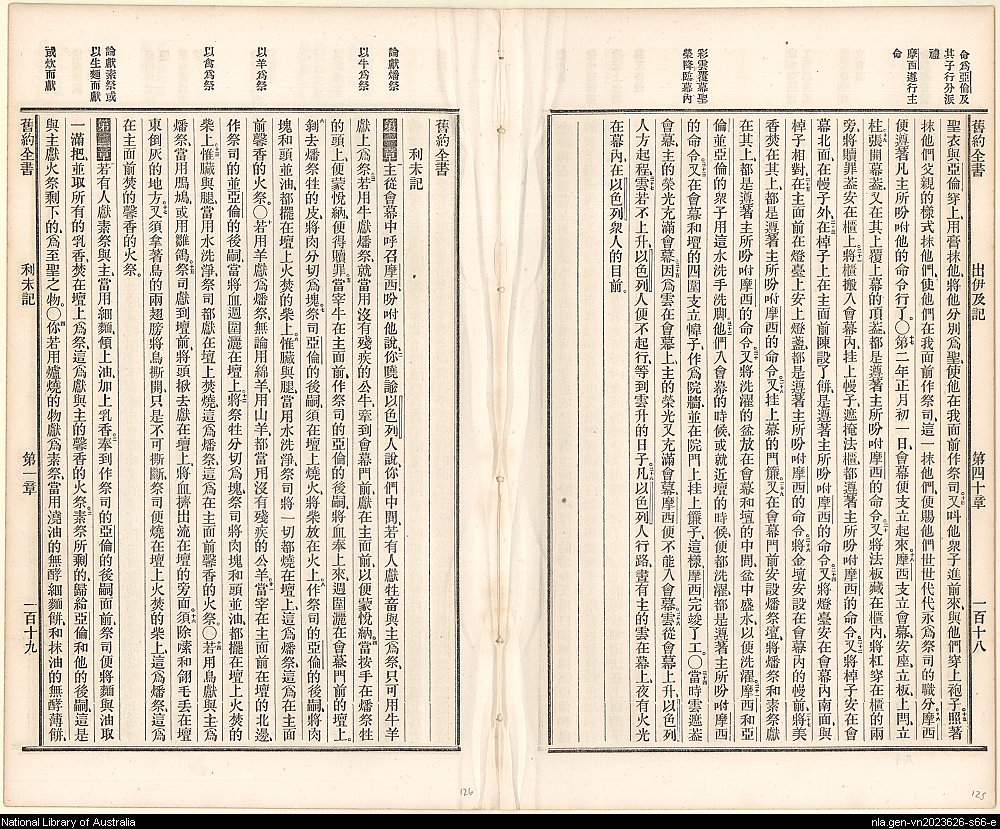 命爲亞倫及
其子行分派
禮
摩西遵行主
命
彩雲覆幕聖
榮降臨幕內
舊約全書
出伊及記
第四十章
一百十八
聖衣與亞倫穿上用膏抹他將他分別爲聖使他在我面前作祭司又叫他衆子進前來與他們穿上袍子照著
抹他們父親的樣式抹他們使他們在我面前作祭司這一抹他們便賜他們世世代代永爲祭司的職分摩西
便遵著凡主所吩咐他的命令行了〇第二年正月初一日會幕便支立起來摩西支立會幕安座立板上閂立
柱張開幕蓋又在其上覆上幕的頂蓋都是遵著主所吩咐摩西的命令又將法板藏在櫃內將杠穿在櫃的兩
旁將贖罪蓋安在櫃上將櫃搬入會幕內挂上幔子遮掩法櫃都遵著主所吩咐摩西的命令又將棹子安在會
幕北面在幔子外在棹子上在主面前陳設了餅是遵著主所吩咐摩西的命令又將燈臺安在會幕內南面與
棹子相對在主面前在燈臺上安上燈盞都是遵著主所吩咐摩西的命令將金壇安設在會幕內的幔前將美
香焚在其上都是遵著主所吩咐摩西的命令又挂上幕的門簾又在會幕門前安設燔祭壇將燔祭和素祭獻
在其上都是遵著主所吩咐摩西的命令又將洗濯的盆放在會幕和壇的中間盆中盛水以便洗濯摩西和亞
倫並亞倫的衆子用這水洗手洗脚他們入會幕的時候或就近壇的時候便都洗濯都是遵著主所吩咐摩西
的命令又在會幕和壇的四圍支立幃子作爲院牆並在院門上挂上簾子這樣摩西完竣了工〇當時雲遮蓋
會幕主的榮光充滿會幕因爲雲在會幕上主的榮光又充滿會幕摩西便不能入會幕雲從會幕上升以色列
人方起程雲若不上升以色列人便不起行等到雲升的日子凡以色列人行路晝有主的雲在幕上夜有火光
在幕內在以色列衆人的目前
論獻燔祭
以牛爲祭
以羊爲祭
以禽爲祭
論獻素祭或
以生麵而獻
或炊而獻
舊約全書
利未記
第一章主從會幕中呼召摩西吩咐他說你曉諭以色列人說你們中間若有人獻牲畜與主爲祭只可用牛羊
獻上爲祭若用牛獻燔祭就當用沒有殘疾的公牛牽到會幕門前獻在主面前以便蒙悅納當按手在燔祭牲
的頭上便蒙悅納便得贖罪當宰牛在主面前作祭司的亞倫的後嗣將血奉上來週圍灑在會幕門前的壇上
剝去燔祭牲的皮將肉分切爲塊祭司亞倫的後嗣須在壇上燒火將柴放在火上作祭司的亞倫的後嗣將肉
塊和頭並油都擺在壇上火焚的柴上惟臟與腿當用水洗淨祭司將一切都燒在壇上這爲燔祭這爲在主面
前馨香的火祭〇若用羊獻爲燔祭無論用綿羊用山羊都當用沒有殘疾的公羊當宰在主面前在壇的北邊
作祭司的並亞倫的後嗣當將血週圍灑在壇上將祭牲分切爲塊祭司將肉塊和頭並油都擺在壇上火焚的
柴上惟臟與腿當用水洗淨祭司都獻在壇上焚燒這爲燔祭這爲在主面前馨香的火祭〇若用鳥獻與主爲
燔祭當用鳲鳩或用雛鴿祭司獻到壇前將頭揪去獻在壇上將血擠出流在壇的旁面須除嗉和翎毛丟在壇
東倒灰的地方又須拿著鳥的兩翅膀將鳥撕開只是不可撕斷祭司便燒在壇上火焚的柴上這爲燔祭這爲
在主面前焚的馨香的火祭
第二章若有人獻素祭與主當用細麵傾上油加上乳香奉到作祭司的亞倫的後嗣面前祭司便將麵與油取
一滿把並取所有的乳香焚在壇上爲祭這爲獻與主的馨香的火祭素祭所剩的歸給亞倫和他的後嗣這是
與主獻火祭剩下的爲至聖之物〇你若用爐燒的物獻爲素祭當用澆油的無酵細麵餅和抹油的無酵薄餅
舊約全書
利未記
第一章
一百十九
126
125
National Library of Australia
nla.gen-vn2023626-s66-e